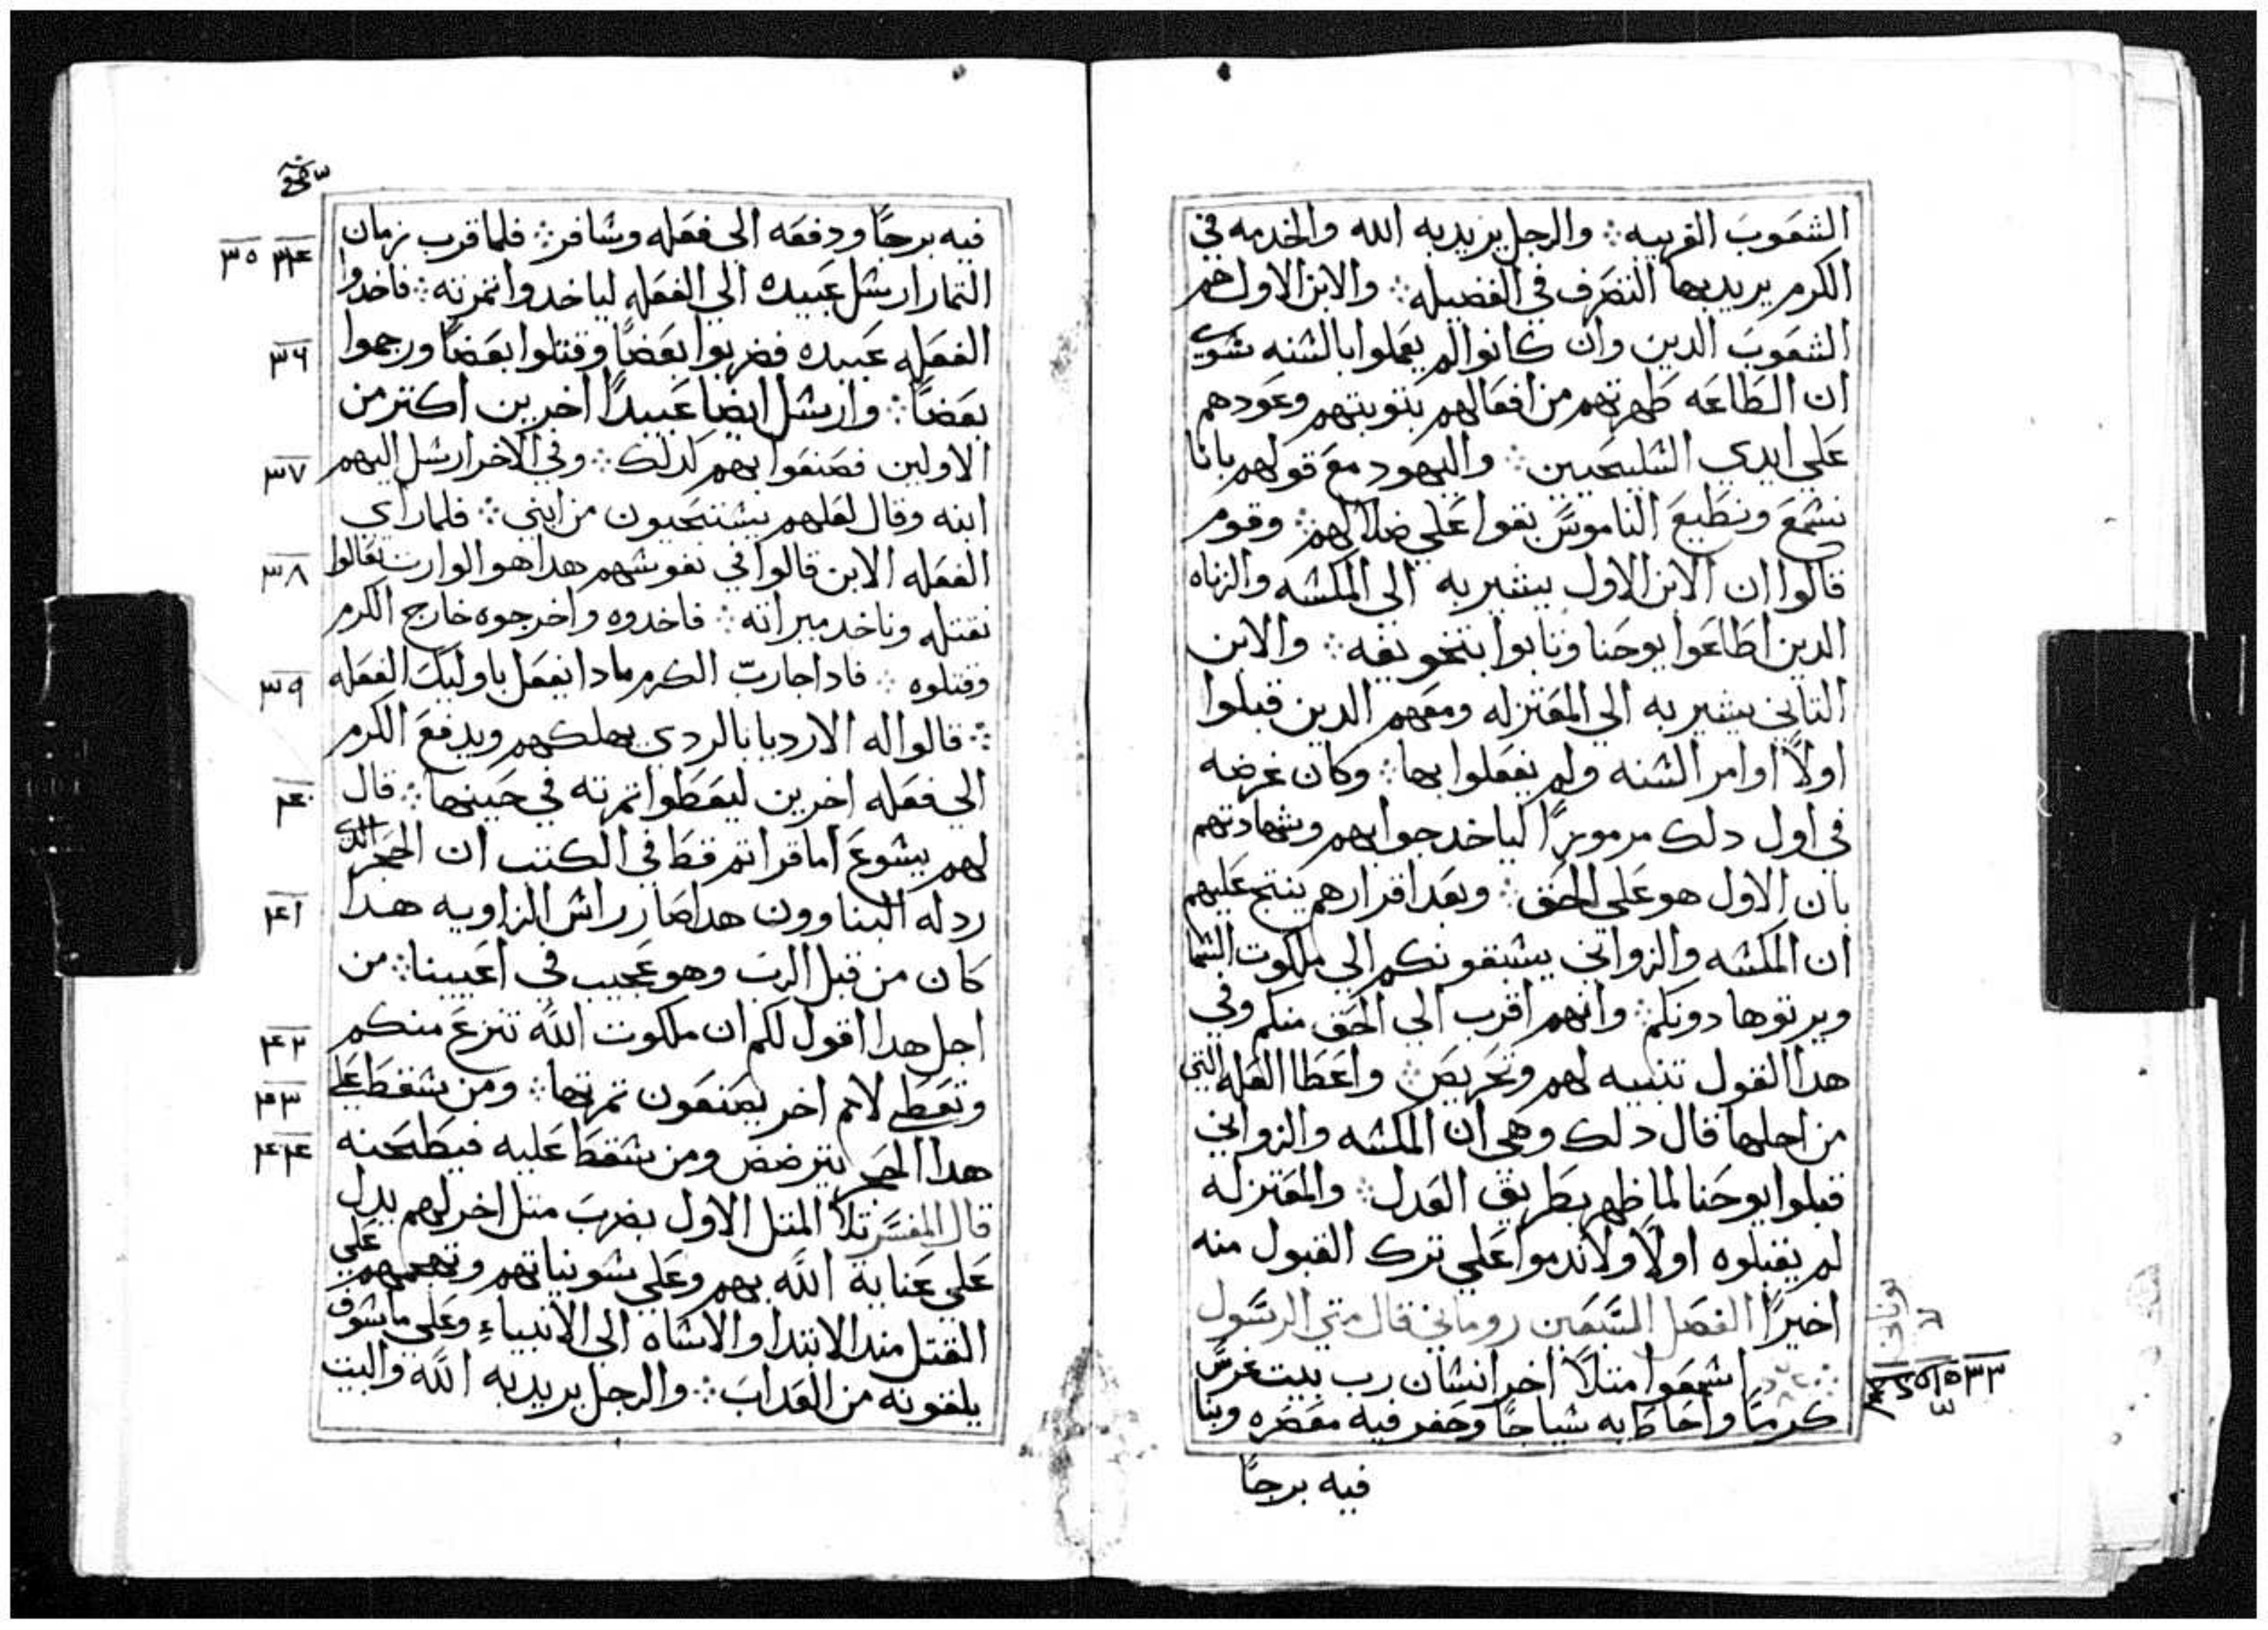 الشعوب الغريبه ؞ والرجل يريد به الله والخدمه في
الكرم يريد بها التصرف في الفضيله ؞ والابن الاول هم
الشعوب الدين وان كانوا لم يعملوا بالسنه سوي
ان الطاعه طهرتهم من افعالهم بتوبتهم وعودهم
علي ايدي السليحيين ؞ واليهود مع قولهم بانا
نسمع ونطيع الناموس بقوا علي ضلالهم ؞ وقوم
قالوا ان الابن الاول يشير به الي المكسه والزناه
الدين اطاعوا يوحنا وتابوا بتخويفه ؞ والابن
التاني يشير به الي المعتزله ومعهم الدين قبلوا
اولاً اوامر السنه ولم يفعلوا بها ؞ وكان غرضه
في اول دلك مرموزاً لياخد جوابهم وشهادتهم
بان الاول هو علي الحق ؞ وبعد اقرارهم ينتج عليهم
ان المكسه والزواني يسبقونكم الي ملكوت السما
ويرتوها دونكم ؞ وانهم اقرب الي الحق منكم وفي
هدا القول تنبيه لهم وتعريض ؞ واعطا العله التي
من اجلها قال دلك وهي ان المكسه والزواني
قبلوا يوحنا لما ظهر بطريق العدل ؞ والمعتزله
لم يقبلوه اولاً ولا ندموا علي ترك القبول منه
اخيراً الفصل السبعين روماني قال متي الرسول
اسمعوا متلاً اخر انسان رب بيت غرس
٣٣
كرماً واحاط به سياجاً وحفر فيه معصره وبنا
فيه برجاً
فيه برجاً ودفعه الي فعله وسافر ؞ فلما قرب زمان
٣٤ ٣٥
التمار ارسل عبيده الي الفعله لياخدوا تمرته ؞ فاخدوا
الفعله عبيده فضربوا بعضاً وقتلوا بعضاً ورجموا
٣٦
بعضاً ؞ وارسل ايضا عبيداً اخرين اكتر من
الاولين فصنعوا بهم كدلك ؞ وفي الاخر ارسل اليهم
٣٧
ابنه وقال لعلهم يستحيون من ابني ؞ فلما راي
الفعله الابن قالوا في نفوسهم هدا هو الوارت تعالوا
٣٨
نقتله وناخد ميراته ؞ فاخدوه واخرجوه خارج الكرم
وقتلوه ؞ فادا جا ربّ الكرم مادا يفعل باوليك الفعله
٣٩
؞ قالوا له الارديا بالردي يهلكهم ويدفع الكرم
الي فعله اخرين ليعطوا تمرته في حينها ؞ قال
٤٠
لهم يسوع اما قراتم قط في الكتب ان الحجر الدي
رد له البناوون هدا صار راس الزاويه هدا
٤١
كان من قبل الرب وهو عجيب في اعيننا ؞ من
اجل هدا اقول لكم ان ملكوت الله تنزع منكم
٤٢
وتعطي لامم اخر يصنعون تمرتها ؞ ومن سقط علي
٤٣
هدا الحجر يترضض ومن سقط عليه فيطحنه
٤٤
قال المفسر تلا المتل الاول بضرب متل اخر لهم يدل
علي عناية الله بهم وعلي سو نياتهم وتهجمهم علي
القتل مند الابتدا والاساه الي الانبياء وعلي ما سوف
يلقونه من العداب ؞ والرجل يريد به الله والبيت